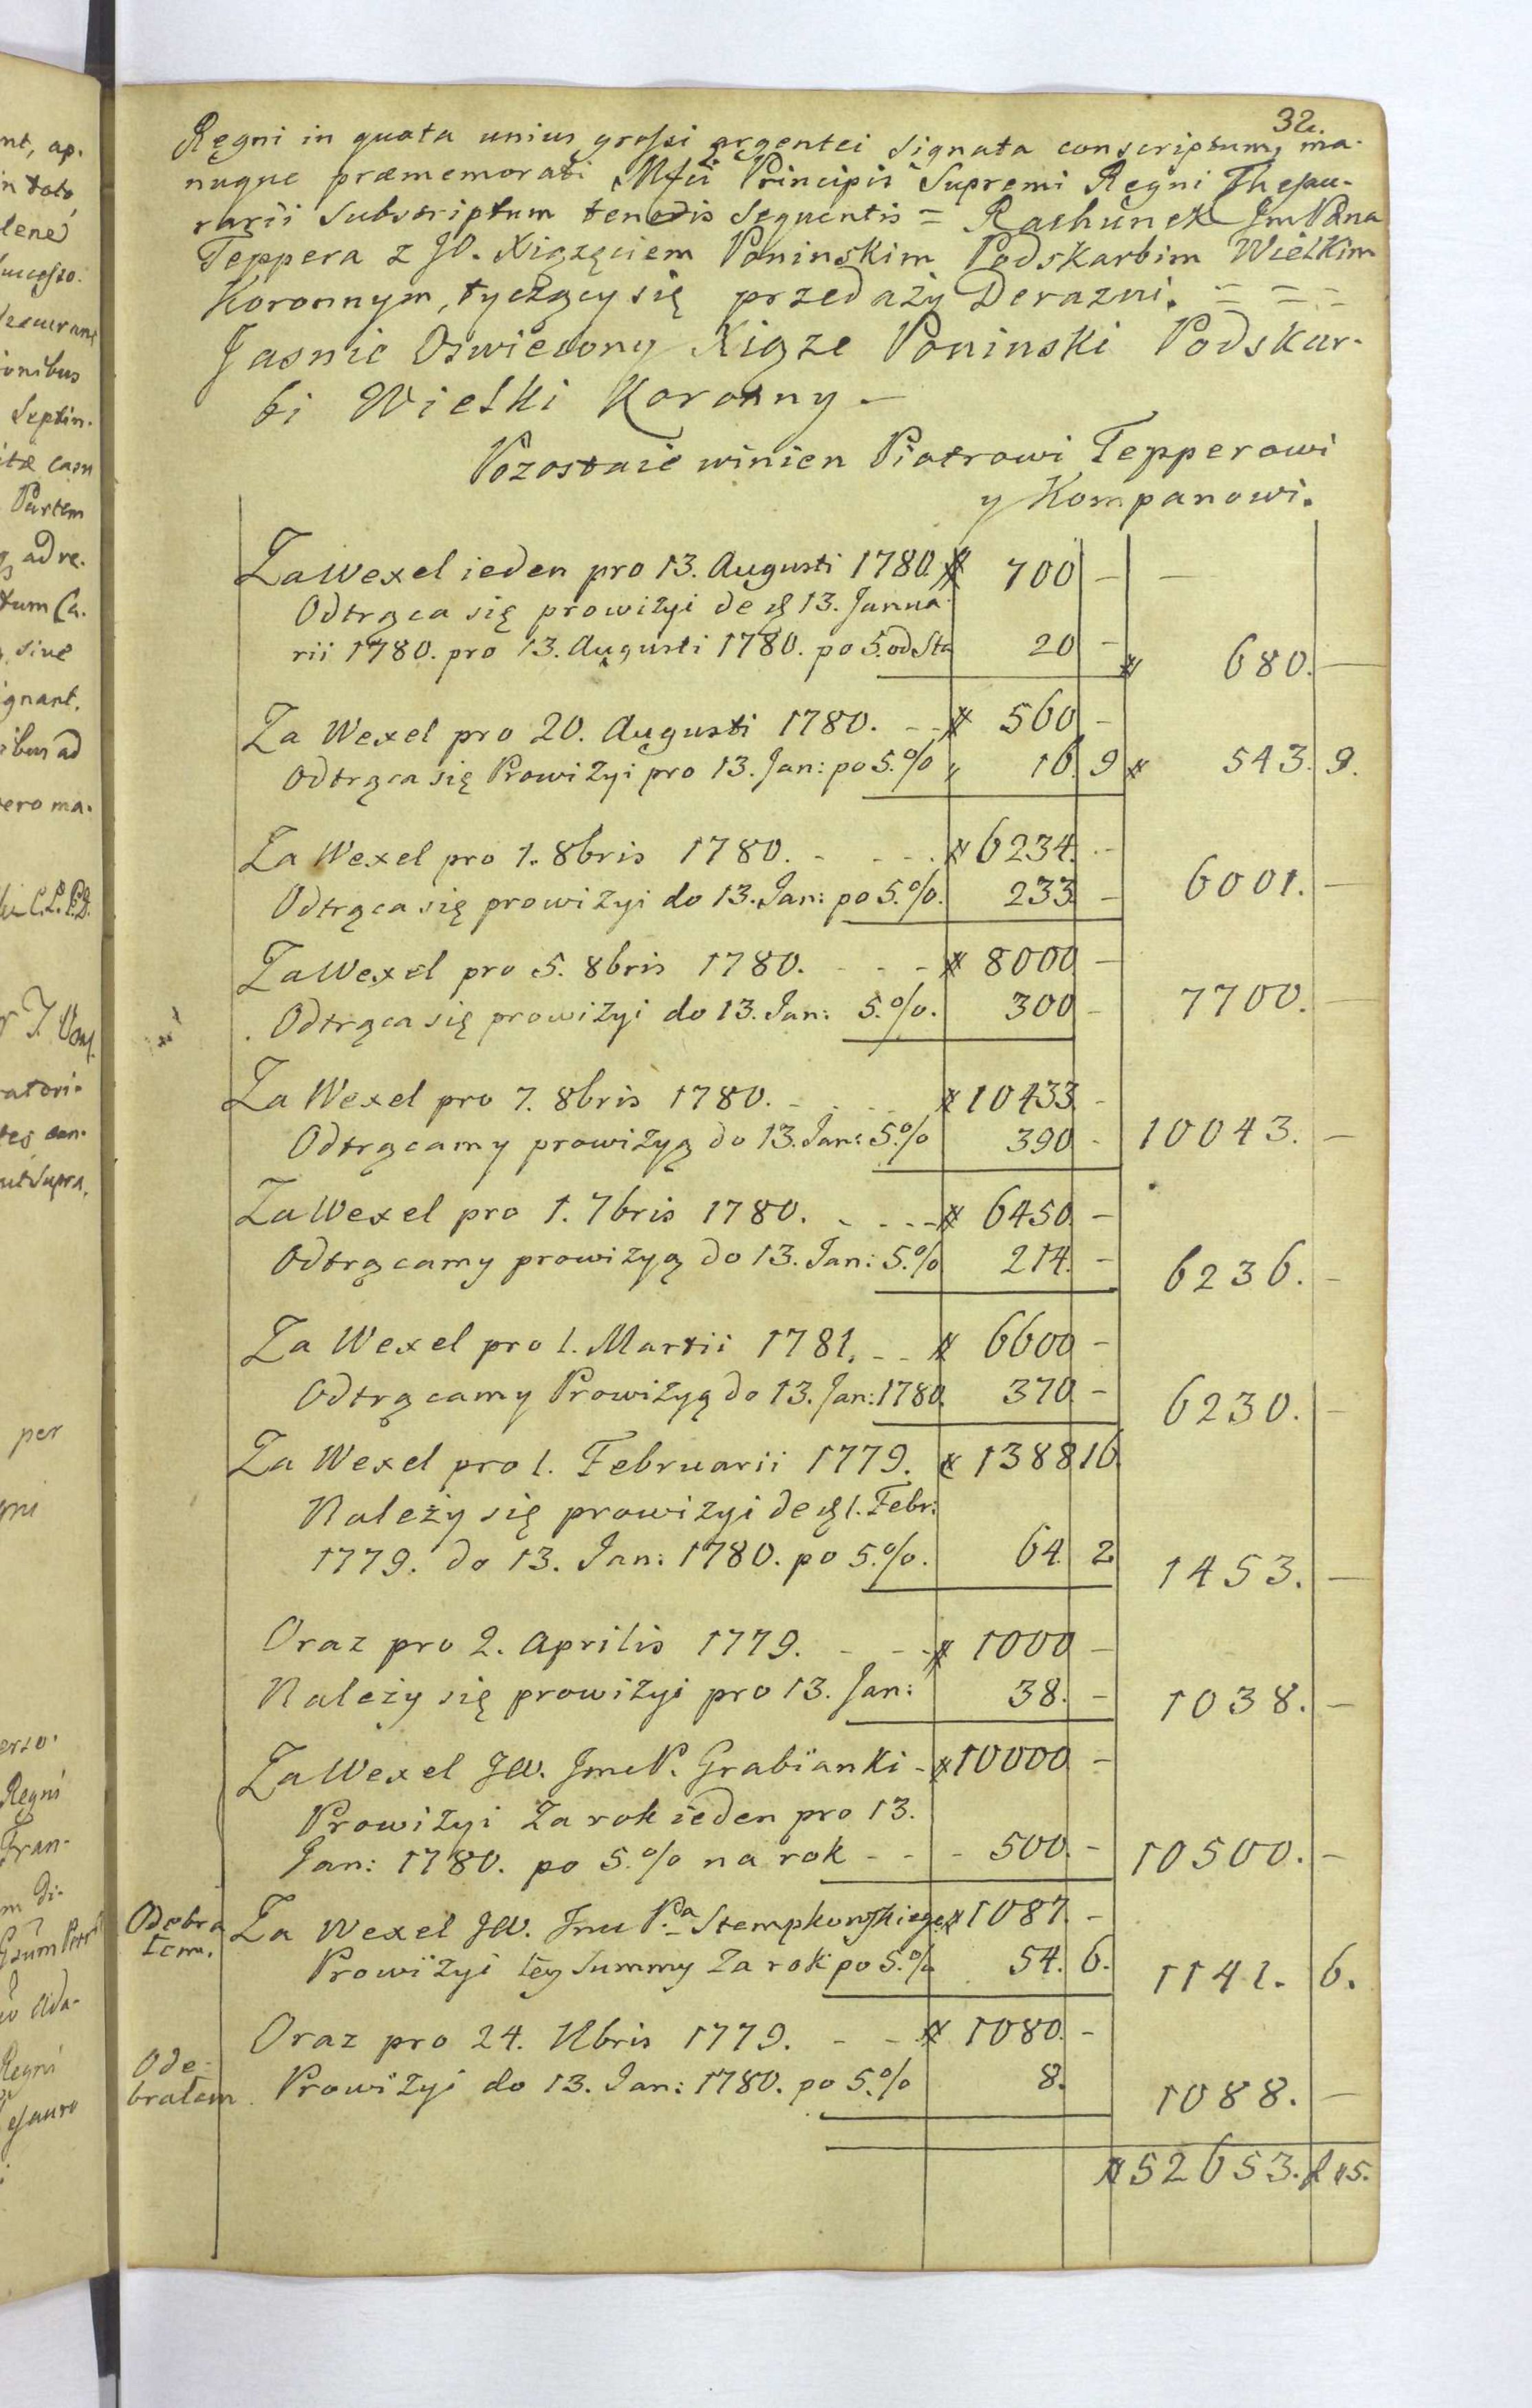 32.
Regni in quota unius grossi argentei signata conscriptum, ma-
nuque præmemorati Mfci Principis Supremi Regni Thesau-
rarii Subscriptum tenoris sequentis = Rachunek Jm Pana
Teppera z JO. Xiążęciem Poninskim Podskarbim Wielkim
Koronnym, tyczący się przedaży Derazni. = = =
Jasnie Oswiecony Xiąze Poninski Podskar-
bi Wielki Koronny —
Pozostaie winien Piotrowi Tepperowi
y Kompanowi.
Za Wexel ieden pro 13. Augusti 1780 # 700 — —
Odtrąca się prowizyi de d 13. Janua-
rii 1780. pro 13. Augusti 1780. po 5. od Sta 20 — # 680. —
Za Wexel pro 20. Augusti 1780. - - # 560 —
Odtrąca się Prowizyi pro 13. Jan: po 5.% " 16 9 # 543. 9.
Za Wexel pro 1. 8bris 1780. - - - # 6234. —
Odtrąca się prowizyi do 13. Jan: po 5.%. 233 — 6001. —
Za Wexel pro 5. 8bris 1780. - - - # 8000 —
Odtrąca się prowizyi do 13. Jan: 5.%. 300 — 7700. —
Za Wexel pro 7. 8bris 1780. - - - # 10433 -
Odtrącamy prowizyą do 13. Jan: 5.% 390 - 10043. —
Za Wexel pro 1. 7bris 1780. - - - - # 6450. —
Odtrącamy prowizyą do 13. Jan: 5.% 214. — 6236. -
Za Wexel pro 1. Martii 1781. - - # 6600 —
Odtrącamy Prowizyą do 13. Jan: 1780. 370. — 6230. —
Za Wexel pro 1. Februarii 1779. # 1388 16.
Należy się prowizyi de d 1. Febr:
1779. do 13. Jan: 1780. po 5.%. 64. 2 1453. —
Oraz pro 2. Aprilis 1779. - - - # 1000 —
Należy się prowizyi pro 13. Jan: 38. — 1038. —
Za Wexel JW. Jmc P. Grabianki - # 10000 —
Prowizyi Za rok ieden pro 13.
Jan: 1780. po 5.% na rok - - - 500. — 10500. —
Odebra
łem.
Za Wexel JW. Jmc Pa Stempkowskiego # 1087. -
Prowizyi tey Summy Za rok po 5.% 54. 6. 1141. 6.
Oraz pro 24. Xbris 1779. - - # 1080. -
Ode-
brałem
Prowizyi do 13. Jan: 1780. po 5.% 8. 1088. —
# 52653. f 15.